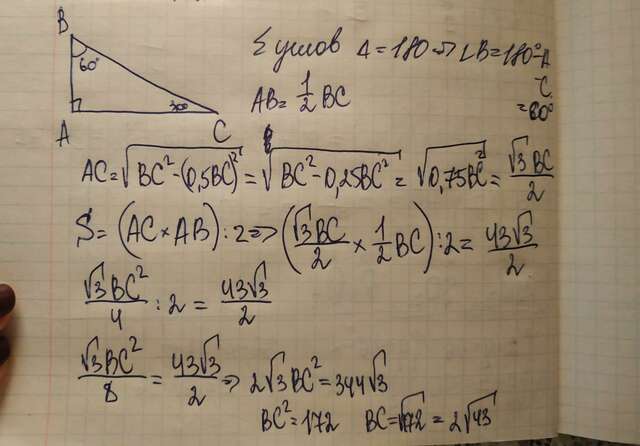 B
60°
A
30°
C
Σ углов Δ = 180 => ∠B = 180° - A - C = 60°
AB = 1/2 BC
AC = √(BC² - (0,5BC)²) = √(BC² - 0,25BC²) = √(0,75BC²) = √3 BC / 2
S = (AC × AB) : 2 => (√3 BC / 2 × 1/2 BC) : 2 = 43√3 / 2
√3 BC² / 4 : 2 = 43√3 / 2
√3 BC² / 8 = 43√3 / 2 => 2√3 BC² = 344√3
BC² = 172 BC = √172 = 2√43